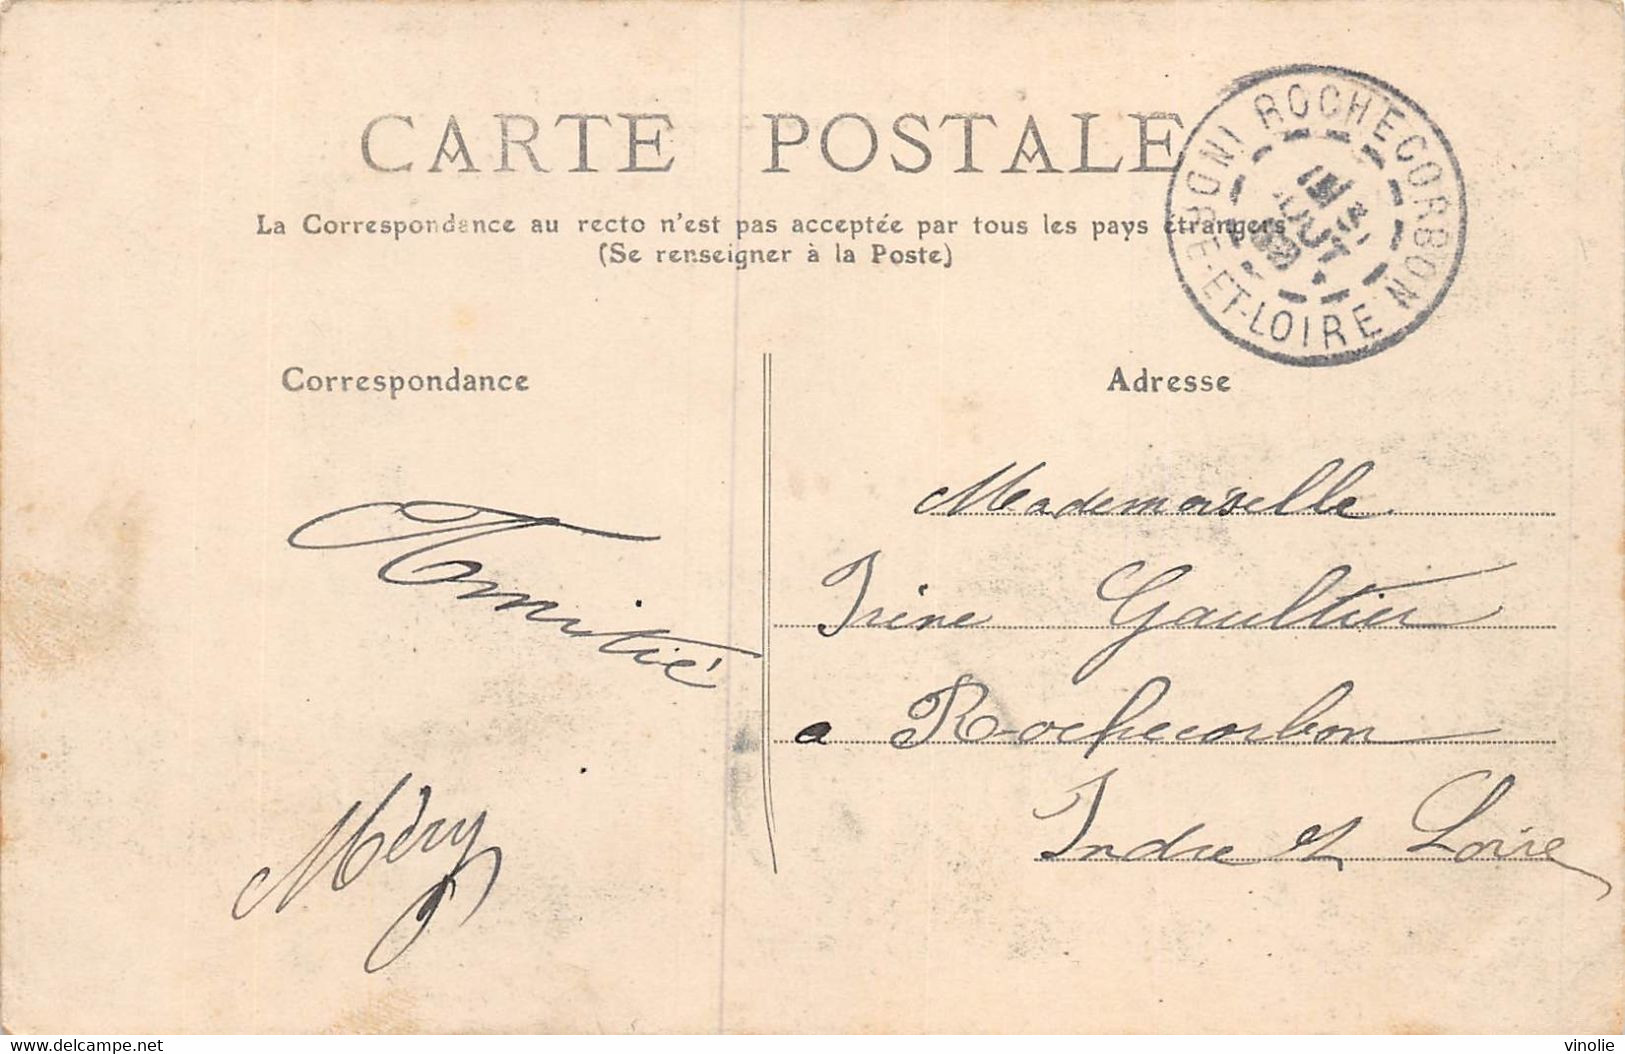 CARTE POSTALE
La Correspondance au recto n'est pas acceptée par tous les pays étrangers
(Se renseigner à la Poste)
ROCHECORBON
E-ET-LOIRE
Correspondance
Adresse
Amitié
Méry
Mademoiselle
Irène Gaultier
a Rochecorbon
Indre et Loire
www.delcampe.net
vinolie